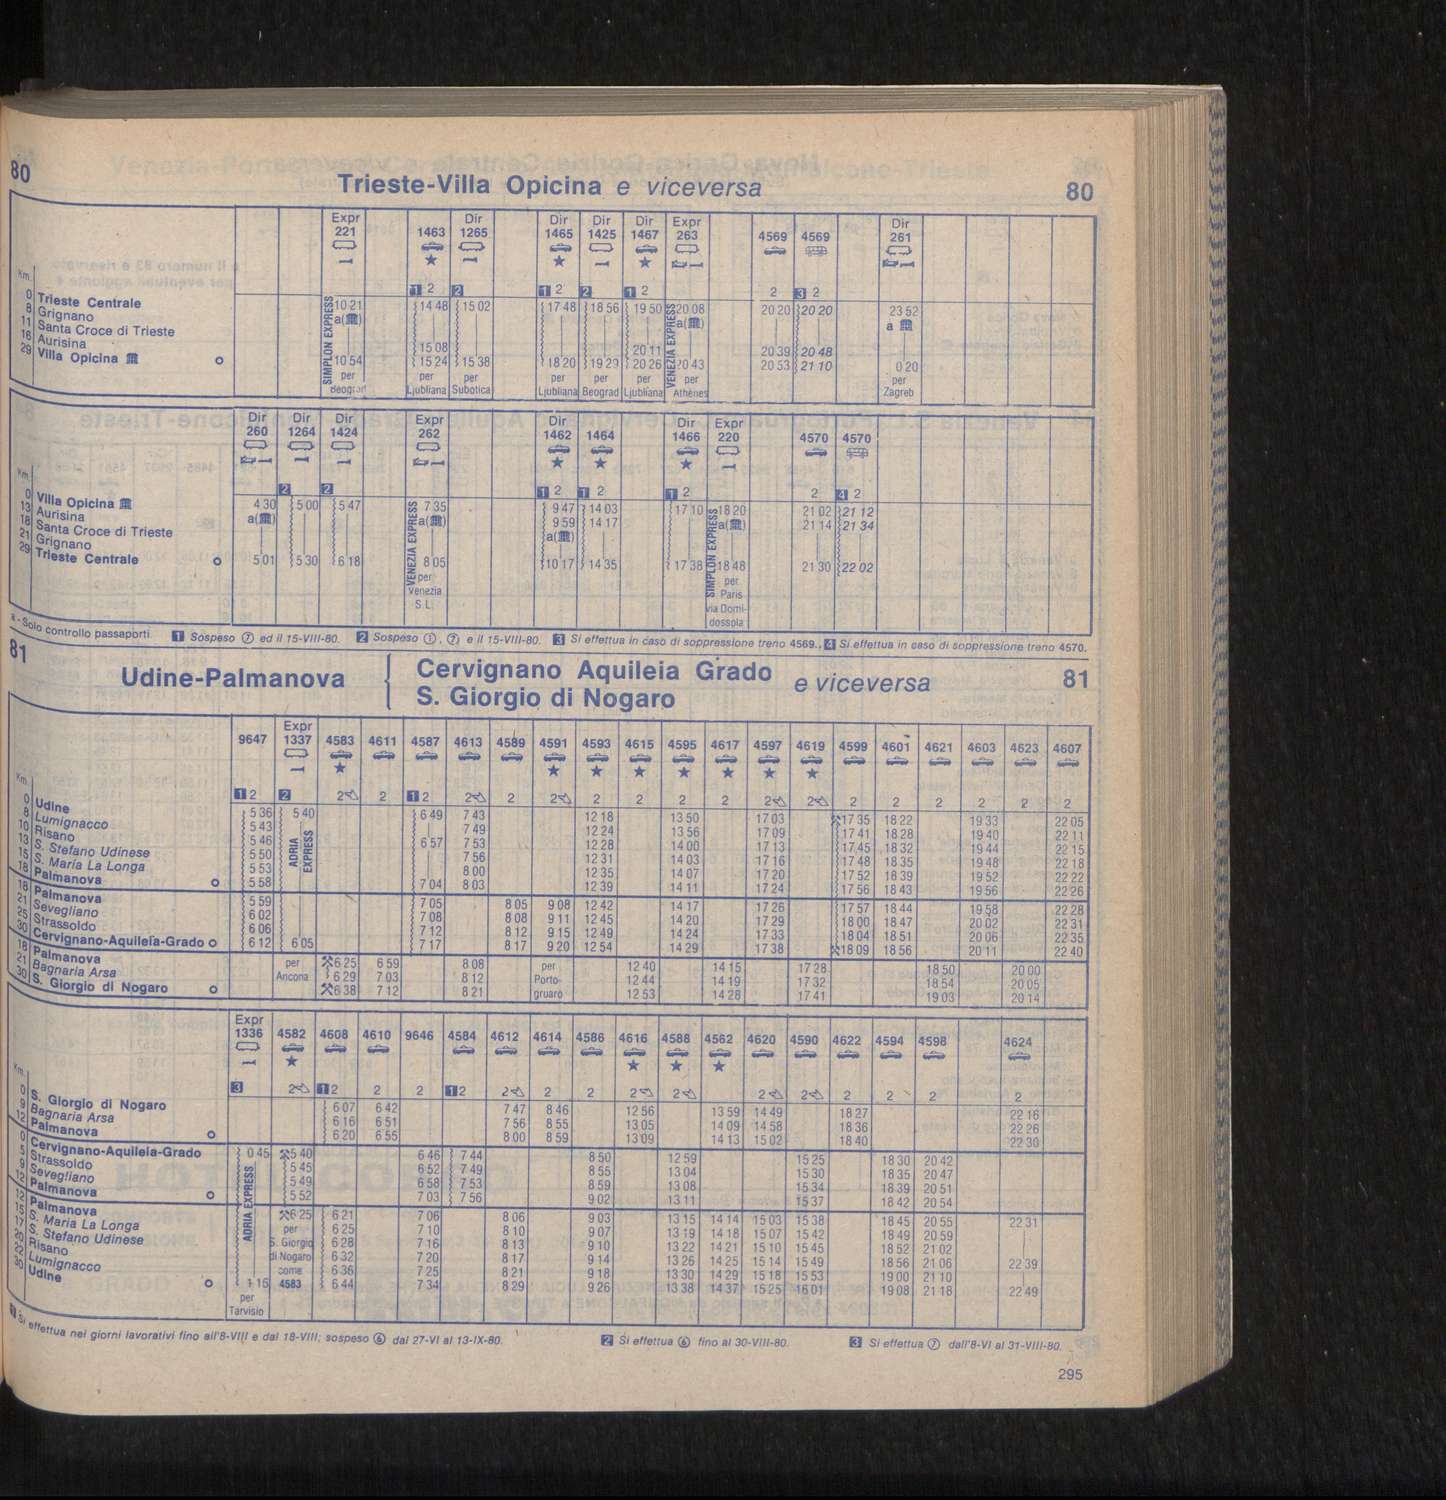 80
Trieste-Villa Opicina e viceversa
80
Expr 221 1463 Dir 1265 Dir 1465 Dir 1425 Dir 1467 Expr 263 4569 4569 Dir 261
1 2 2 1 2 2 1 2 2 3 2
Km.
0 Trieste Centrale 10 21 14 48 15 02 17 48 18 56 19 50 20 08 20 20 20 20 23 52
8 Grignano a( ) a( ) a
11 Santa Croce di Trieste
16 Aurisina 15 08 20 11 20 39 20 48
29 Villa Opicina o 10 54 15 24 15 38 18 20 19 29 20 26 20 43 20 53 21 10 0 20
SIMPLON EXPRESS
VENEZIA EXPRESS
per Beograd per Ljubliana per Subotica per Ljubliana per Beograd per Ljubliana per Athènes per Zagreb
Dir 260 Dir 1264 Dir 1424 Expr 262 Dir 1462 1464 Dir 1466 Expr 220 4570 4570
2 2 1 2 1 2 1 2 2 4 2
Km.
0 Villa Opicina 4 30 5 00 5 47 7 35 9 47 14 03 17 10 18 20 21 02 21 12
13 Aurisina a( ) a( ) 9 59 14 17 a( ) 21 14 21 34
18 Santa Croce di Trieste a( )
21 Grignano
29 Trieste Centrale o 5 01 5 30 6 18 8 05 10 17 14 35 17 38 18 48 21 30 22 02
VENEZIA EXPRESS
SIMPLON EXPRESS
per Venezia S.L.
per Paris via Domi-dossola
a - Solo controllo passaporti 1 Sospeso 7 ed il 15-VIII-80. 2 Sospeso 1, 7 e il 15-VIII-80. 3 Si effettua in caso di soppressione treno 4569. 4 Si effettua in caso di soppressione treno 4570.
81
Udine-Palmanova { Cervignano Aquileia Grado
S. Giorgio di Nogaro
e viceversa
81
9647 Expr 1337 4583 4611 4587 4613 4589 4591 4593 4615 4595 4617 4597 4619 4599 4601 4621 4603 4623 4607
1 2 2 2 2 1 2 2 2 2 2 2 2 2 2 2 2 2 2 2 2 2
Km.
0 Udine 5 36 5 40 6 49 7 43 12 18 13 50 17 03 17 35 18 22 19 33 22 05
8 Lumignacco 5 43 7 49 12 24 13 56 17 09 17 41 18 28 19 40 22 11
10 Risano 5 46 6 57 7 53 12 28 14 00 17 13 17 45 18 32 19 44 22 15
13 S. Stefano Udinese 5 50 7 56 12 31 14 03 17 16 17 48 18 35 19 48 22 18
15 S. Maria La Longa 5 53 8 00 12 35 14 07 17 20 17 52 18 39 19 52 22 22
18 Palmanova o 5 58 7 04 8 03 12 39 14 11 17 24 17 56 18 43 19 56 22 26
ADRIA EXPRESS
18 Palmanova 5 59 7 05 8 05 9 08 12 42 14 17 17 26 17 57 18 44 19 58 22 28
21 Sevegliano 6 02 7 08 8 08 9 11 12 45 14 20 17 29 18 00 18 47 20 02 22 31
25 Strassoldo 6 06 7 12 8 12 9 15 12 49 14 24 17 33 18 04 18 51 20 06 22 35
30 Cervignano-Aquileia-Grado o 6 12 6 05 7 17 8 17 9 20 12 54 14 29 17 38 18 09 18 56 20 11 22 40
18 Palmanova per 6 25 6 59 8 08 per 12 40 14 15 17 28 18 50 20 00
21 Bagnaria Arsa Ancona 6 29 7 03 8 12 Porto- 12 44 14 19 17 32 18 54 20 05
30 S. Giorgio di Nogaro o 6 38 7 12 8 21 gruaro 12 53 14 28 17 41 19 03 20 14
Expr 1336 4582 4608 4610 9646 4584 4612 4614 4586 4616 4588 4562 4620 4590 4622 4594 4598 4624
3 2 1 2 2 2 1 2 2 2 2 2 2 2 2 2 2 2 2
Km.
0 S. Giorgio di Nogaro 6 07 6 42 7 47 8 46 12 56 13 59 14 49 18 27 22 16
9 Bagnaria Arsa 6 16 6 51 7 56 8 55 13 05 14 09 14 58 18 36 22 26
12 Palmanova o 6 20 6 55 8 00 8 59 13 09 14 13 15 02 18 40 22 30
0 Cervignano-Aquileia-Grado 0 45 5 40 6 46 7 44 8 50 12 59 15 25 18 30 20 42
5 Strassoldo 5 45 6 52 7 49 8 55 13 04 15 30 18 35 20 47
9 Sevegliano 5 49 6 58 7 53 8 59 13 08 15 34 18 39 20 51
12 Palmanova o 5 52 7 03 7 56 9 02 13 11 15 37 18 42 20 54
12 Palmanova 6 25 6 21 7 06 8 06 9 03 13 15 14 14 15 03 15 38 18 45 20 55 22 31
15 S. Maria La Longa per 6 25 7 10 8 10 9 07 13 19 14 18 15 07 15 42 18 49 20 59
17 S. Stefano Udinese S. Giorgio 6 28 7 16 8 13 9 10 13 22 14 21 15 10 15 45 18 52 21 02
20 Risano di Nogaro 6 32 7 20 8 17 9 14 13 26 14 25 15 14 15 49 18 56 21 06 22 39
22 Lumignacco come 6 36 7 25 8 21 9 18 13 30 14 29 15 18 15 53 19 00 21 10
30 Udine o 1 15 4583 6 44 7 34 8 29 9 26 13 38 14 37 15 25 16 01 19 08 21 18 22 49
ADRIA EXPRESS
per Tarvisio
1 Si effettua nei giorni lavorativi fino all'8-VIII e dal 18-VIII; sospeso 6 dal 27-VI al 13-IX-80. 2 Si effettua 6 fino al 30-VIII-80. 3 Si effettua 7 dall'8-VI al 31-VIII-80.
295